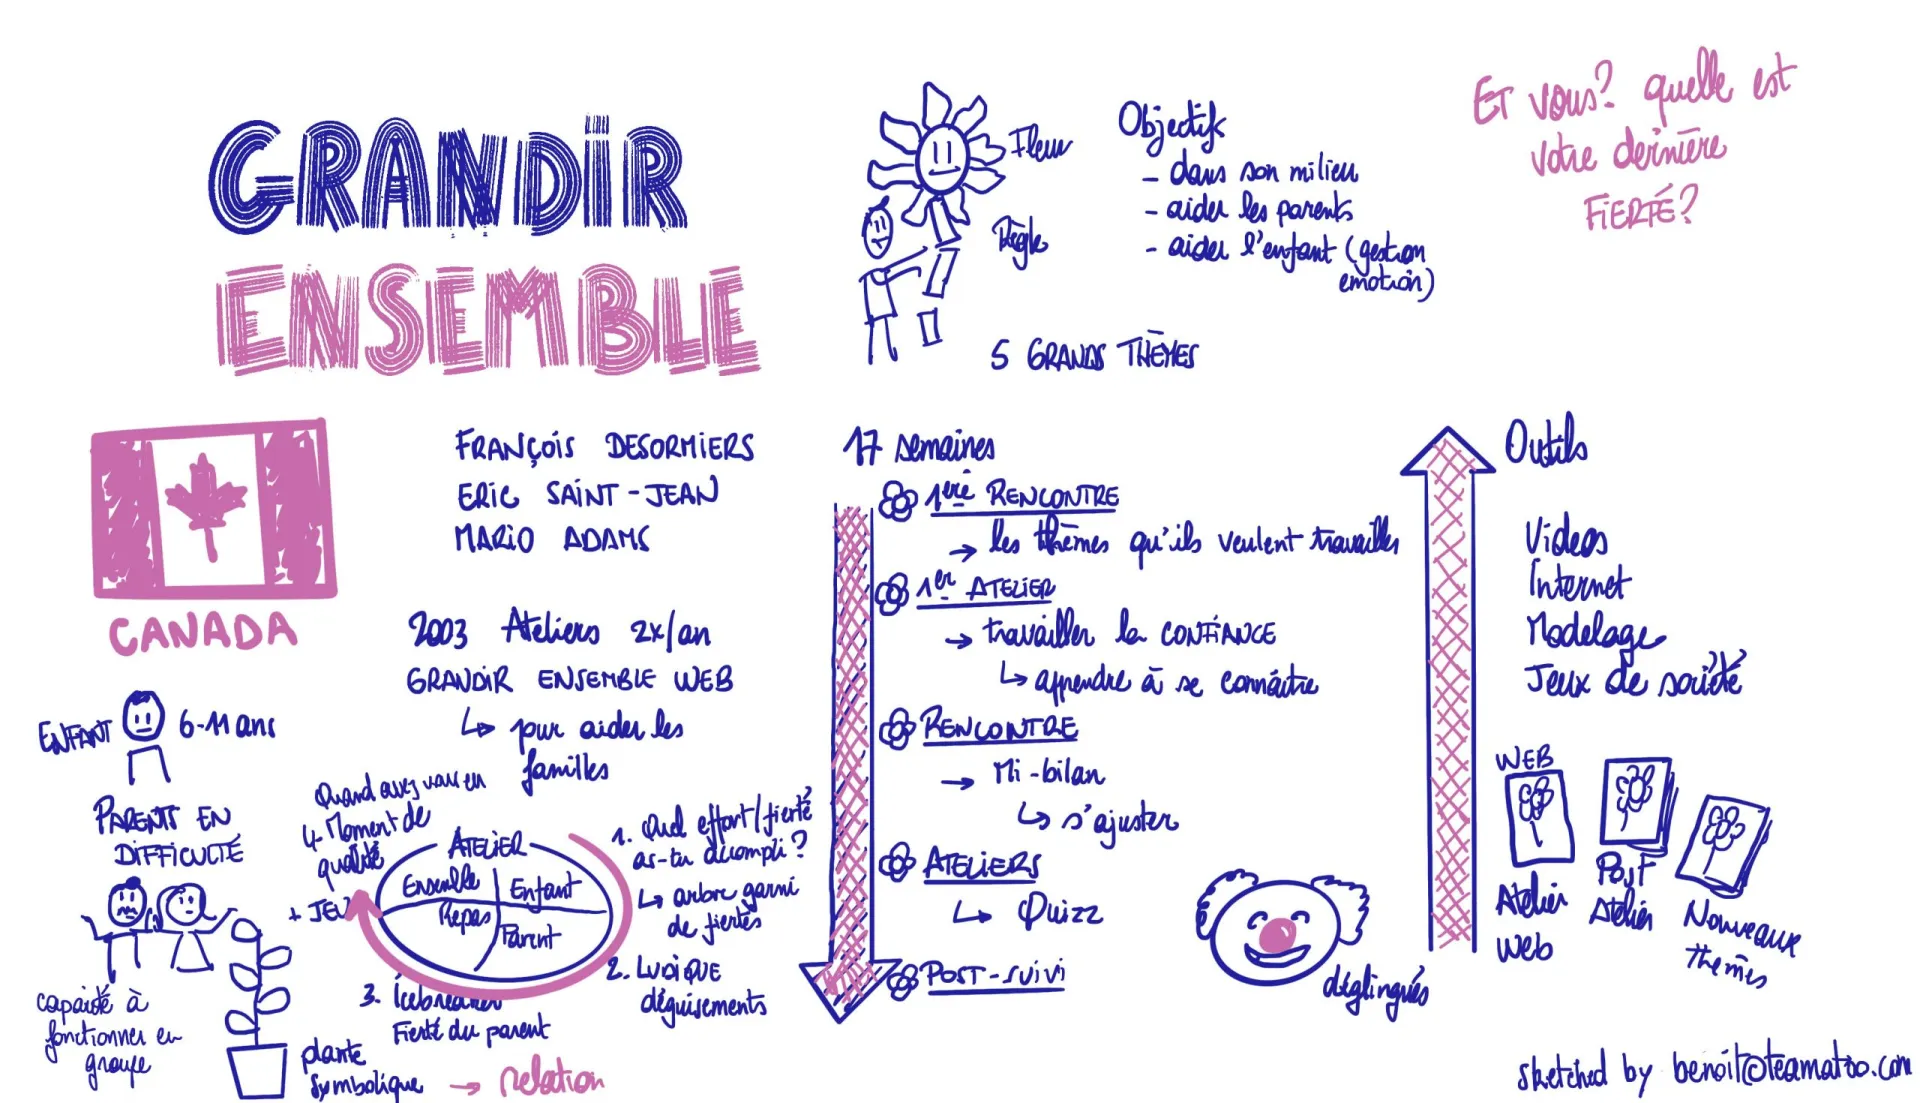 GRANDIR
ENSEMBLE
Fleur
Règle
Objectifs
- dans son milieu
- aider les parents
- aider l'enfant (gestion
emotion)
5 GRANDS THÈMES
ET vous? quelle est
votre dernière
FIERTÉ?
CANADA
FRANÇOIS DESORMIERS
ERIC SAINT-JEAN
MARIO ADAMS
2003 Ateliers 2x/an
GRANDIR ENSEMBLE WEB
↳ pour aider les
familles
ENFANT 6-11 ans
PARENTS EN
DIFFICULTÉ
capacité à
fonctionner en
groupe
Quand avez vous eu
4. Moment de
qualité
+ JEU
ATELIER
Ensemble
Enfant
Repas
Parent
1. Quel effort/fierté
as-tu accompli?
↳ arbre garni
de fiertés
2. LUDIQUE
déguisements
3. Icebreaker
Fierté du parent
plante
symbolique → relation
17 semaines
1ère RENCONTRE
→ les thèmes qu'ils veulent travailler
1er ATELIER
→ travailler la CONFIANCE
↳ apprendre à se connaître
RENCONTRE
→ Mi-bilan
↳ s'ajuster
ATELIERS
↳ Quizz
POST-SUIVI
déglingués
Outils
Videos
Internet
Modelage
Jeux de société
WEB
Atelier
Web
Post
Atelier
Nouveaux
thèmes
sketched by benoit@teamatoo.com